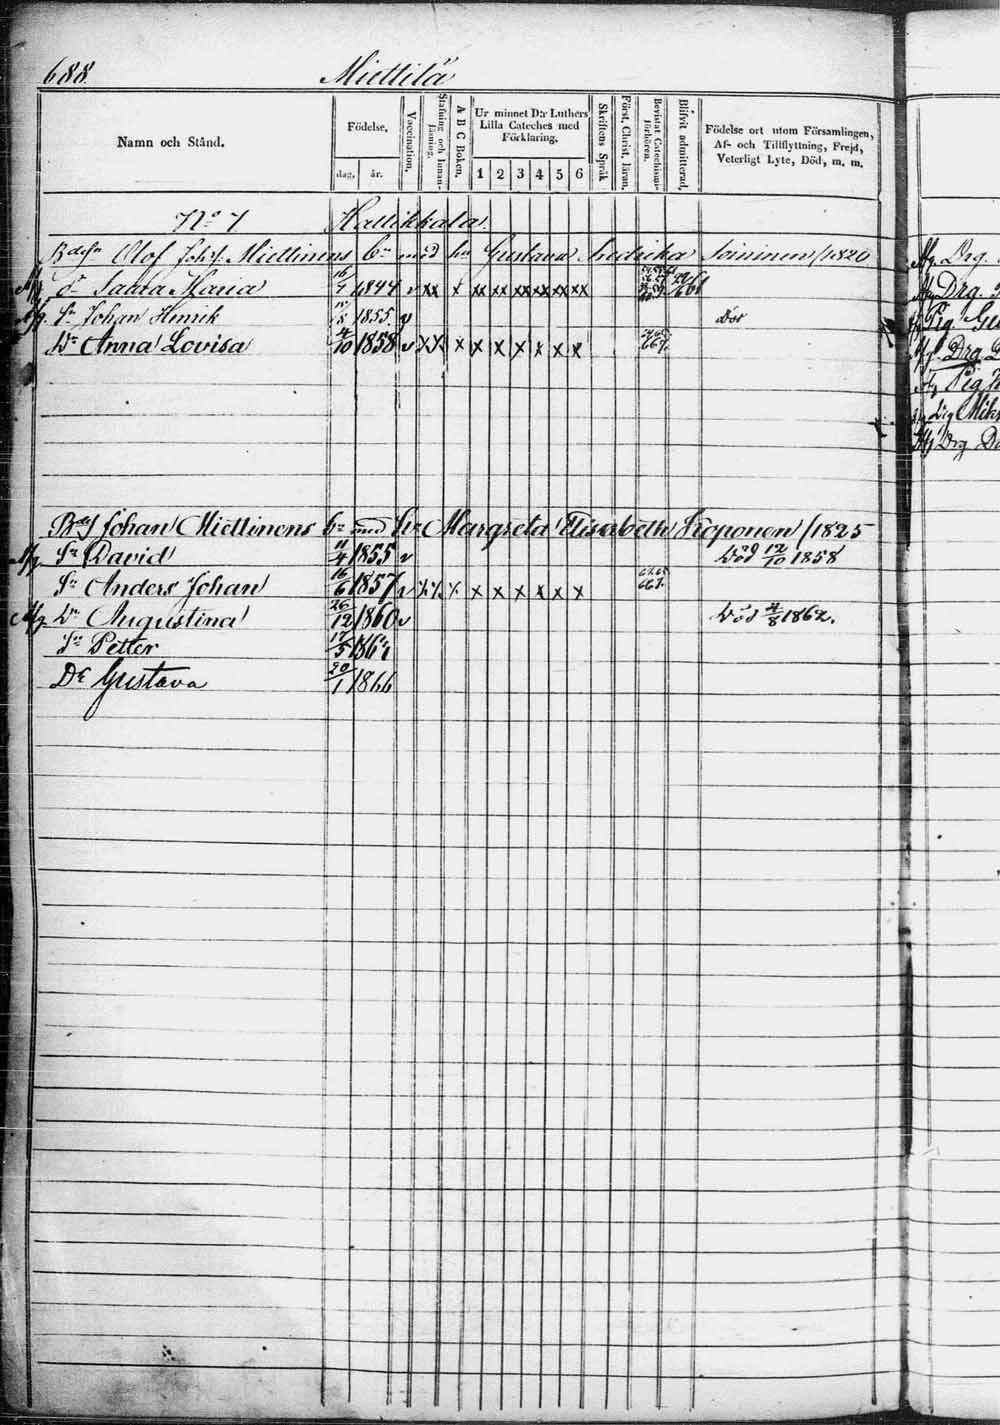 688. Miettilä
Namn och Stånd.
Födelse,
dag, år.
Vaccination.
Stafning och Innanläsning.
A B C Boken.
Ur minnet D:r Luthers Lilla Cateches med Förklaring.
1 2 3 4 5 6
Skriftens Språk.
Först. Christ. läran.
Bevistat Catechismiförhören.
Blifvit admitterad,
Födelse ort utom Församlingen, Af- och Tillflyttning, Frejd, Veterligt Lyte, Död, m. m.
No 7 Hallikkala
Olof Joh:s Miettinens b:n med h:u Gustava Fredrika Soininen /1820
Saara Maria 1844 v x x x xx xx xx xx xx xx
S:n Johan Henrik 1855 v Död
D:r Anna Lovisa 4/10 1858 v x x x x x x x x x
Johan Miettinens b:n med h:u Margreta Elisabeth Kroponen /1825
S:n David 11/4 1855 v Död 12/10 1858
S:n Anders Johan 16/6 1857 v x x x x x x x x x
D:r Augustina 26/12 1860 v Död 4/8 1862.
S:n Petter 17/5
D:r Gustava 20/1 1866
Drg
Drg
Pig
Drg
Pig
Drg
Drg